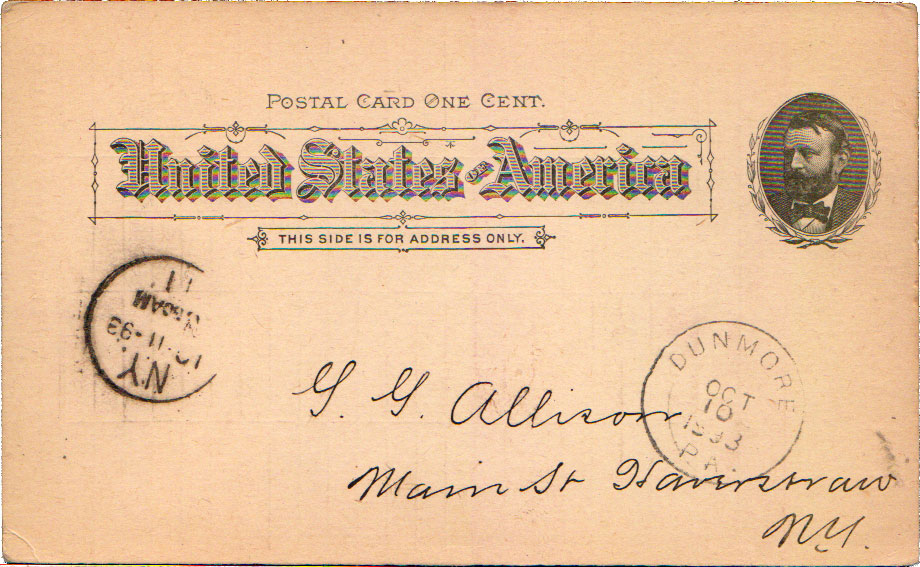 POSTAL CARD ONE CENT.
United States OF America
THIS SIDE IS FOR ADDRESS ONLY.
N.Y.
10-11-93
30AM
DUNMORE
OCT
10
1893
PA.
G. G. Allison
Main St Haverstraw
N.Y.